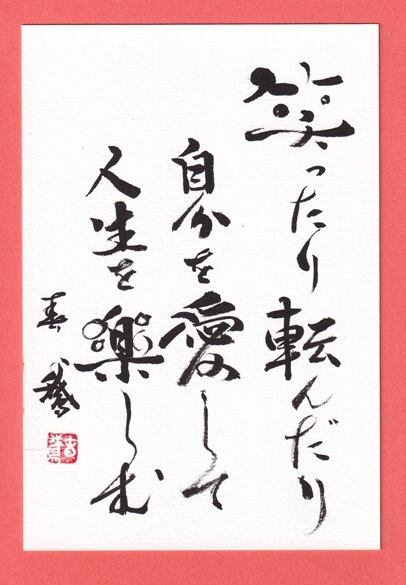 笑ったり転んだり
自分を愛して
人生を楽しむ